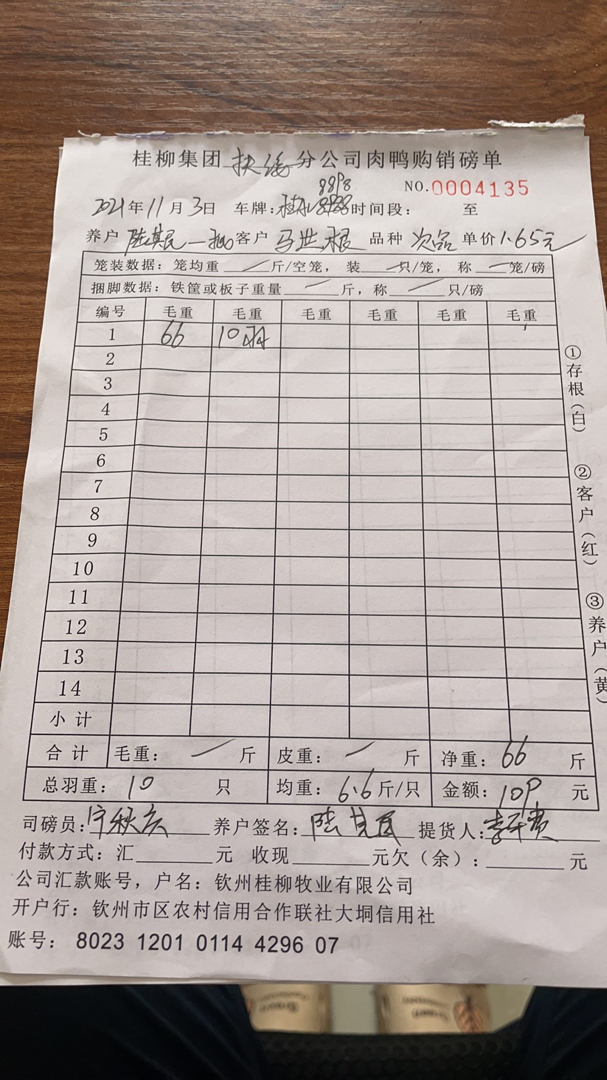 桂柳集团 扶绥 分公司肉鸭购销磅单
NO.0004135
2021年11月3日 车牌: 8898 时间段: 至
养户 陆其民一批 客户 马世根 品种 次品 单价1.65元
笼装数据: 笼均重 一 斤/空笼, 装 一 只/笼, 称 一 笼/磅
捆脚数据: 铁筐或板子重量 一 斤, 称 一 只/磅
编号 毛重 毛重 毛重 毛重 毛重 毛重
1 66 10羽
2
3
4
5
6
7
8
9
10
11
12
13
14
小计
合计 毛重: 一 斤 皮重: 一 斤 净重: 66 斤
总羽重: 10 只 均重: 6.6 斤/只 金额: 109 元
司磅员: 宁秋 养户签名: 陆其民 提货人:
付款方式: 汇 元 收现 元欠(余): 元
公司汇款账号, 户名: 钦州桂柳牧业有限公司
开户行: 钦州市区农村信用合作联社大垌信用社
账号: 8023 1201 0114 4296 07
①存根(白)
②客户(红)
③养户(黄)